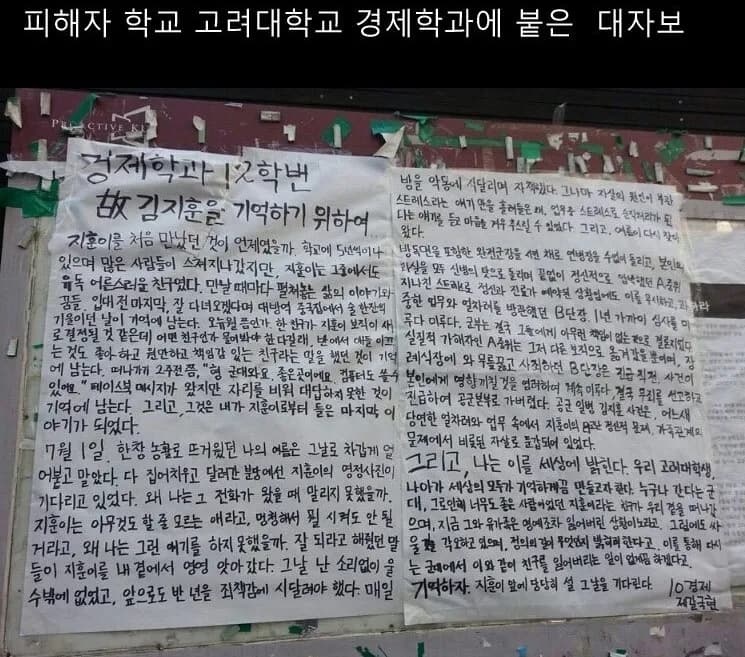 피해자 학교 고려대학교 경제학과에 붙은 대자보
PROACTIVE
경제학과 12학번
故 김지훈을 기억하기 위하여...
지훈이를 처음 만났던 것이 언제였을까. 학교에 5년씩이나
있으며 많은 사람들이 스쳐지나갔지만, 지훈이는 그중에서도
유독 어른스러운 친구였다. 만날 때마다 펼쳐놓는 삶의 이야기와
꿈들. 입대 전 마지막, 잘 다녀오겠다며 대방역 중국집에서 술 한잔의
기울이던 날이 기억에 남는다.
로 결정될 것 같은데 어떤 친구인가 물어봐야 한다길래, 낫에서 애들 이끄
는 것도 좋아하고 원만하고 책임감 있는 친구라는 말을 했던 것이 기억
에 남는다. 떠나가기 2주전쯤, "형 군대와요. 좋은곳이에요. 컴퓨터도 쓸수
있어요." 페이스북 메시지가 왔지만 자리를 비워 대답하지 못한 것이
기억에 남는다. 그리고, 그것은 내가 지훈이로부터 들은 마지막 이
야기가 되었다.
7월 1일. 한창 농활로 뜨거웠던 나의 여름은 그날로 차갑게 얼
어붙고 말았다. 다 집어치우고 달려간 분당에선 지훈이의 영정사진이
기다리고 있었다. 왜 나는 그 전화가 왔을 때 말리지 못했을까.
지훈이는 아무것도 할 줄 모르는 애라고, 멍청해서 뭘 시켜도 안 될
거라고, 왜 나는 그런 얘기를 하지 못했을까. 잘 되라고 해줬던 말
들이 지훈이를 내 곁에서 영영 앗아갔다. 그날 난 소리없이 울
수밖에 없었고, 앞으로도 반 년을 죄책감에 시달려야 했다. 매일
밤을 악몽에 시달리며 자책했다. 그나마 자살의 원인이 부관
스트레스라는 얘기만을 흘려들은 채, 업무중 스트레스로 순직처리가 된
다는 얘기를 듣고 마음을 겨우 추스릴 수 있었다. 그리고, 여름이 다시 찾아
왔다.
방독면을 포함한 완전군장을 4번 채로 연병장을 수없이 돌리고, 본인의
과실을 모두 신병의 탓으로 돌리며 끝없이 정신적으로 압박했던 A중위
지나친 스트레스로 정신과 진료가 예약된 상황임에도 이를 무시하고,
중한 업무와 얼차려를 방관했던 B단장. 1년 가까이 심사를 미
루다 미루다. 군부는 결국 그들에게 아무런 책임이 없는 것으로 결론지었다
실질적 가해자인 A중위는 그저 다른 보직으로 옮겨갔을 뿐이며, 장
례식장에 와 무릎꿇고 사죄하던 B단장은 진급 직전, 사건이
본인에게 영향끼칠 것을 염려하여 계속 미루다, 결국 무죄를 선고하고
진급하여 공군본부로 가버렸다. 공군 일병 김지훈 사건은, 어느새
당연한 얼차려와 업무 속에서 지훈이의 정신적 문제, 가족관계의
문제에서 비롯된 자살로 둔갑되어 있었다.
그리고, 나는 이를 세상에 밝힌다. 우리 고려대학생,
나아가 세상의 모두가 기억하게끔 만들고자 한다. 누구나 간다는 군
대, 그로인해 너무도 좋은 사람이었던 지훈이라는 친구가 우리 곁을 떠나갔
으며, 지금 그의 유가족은 명예조차 잃어버린 상황이노라고. 그럼에도 싸
움을 각오하고 있으며, 정의의 길이 무엇인지 밝히려 한다고. 이를 통해 다시
는 군대에서 이와 같이 친구를 잃어버리는 일이 없게끔 하겠다고.
기억하자. 지훈이 앞에 당당히 설 그날을 기다린다.
10경제
제갈국현